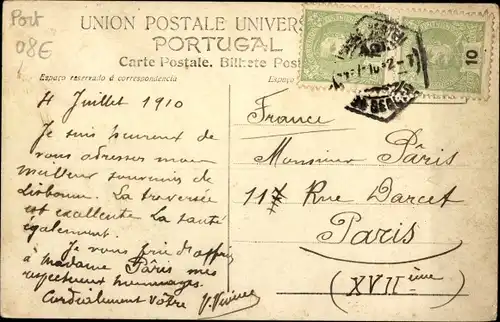 Port
08E
UNION POSTALE UNIVER
PORTUGAL
Carte Postale. Bilhete Post
Espaço reservado á correspondencia
Espaço
10
4 Juillet 1910
Je suis heureux de
vous adresser mon
meilleur souvenir de
Lisbonne. La traversée
est excellente la santé
également.
Je vous prie d'offrir
à madame Pâris mes
respectueux hommages.
Cordialement vôtre
France
Monsieur Pâris
11 Rue Darcet
Paris
(XVIIème)